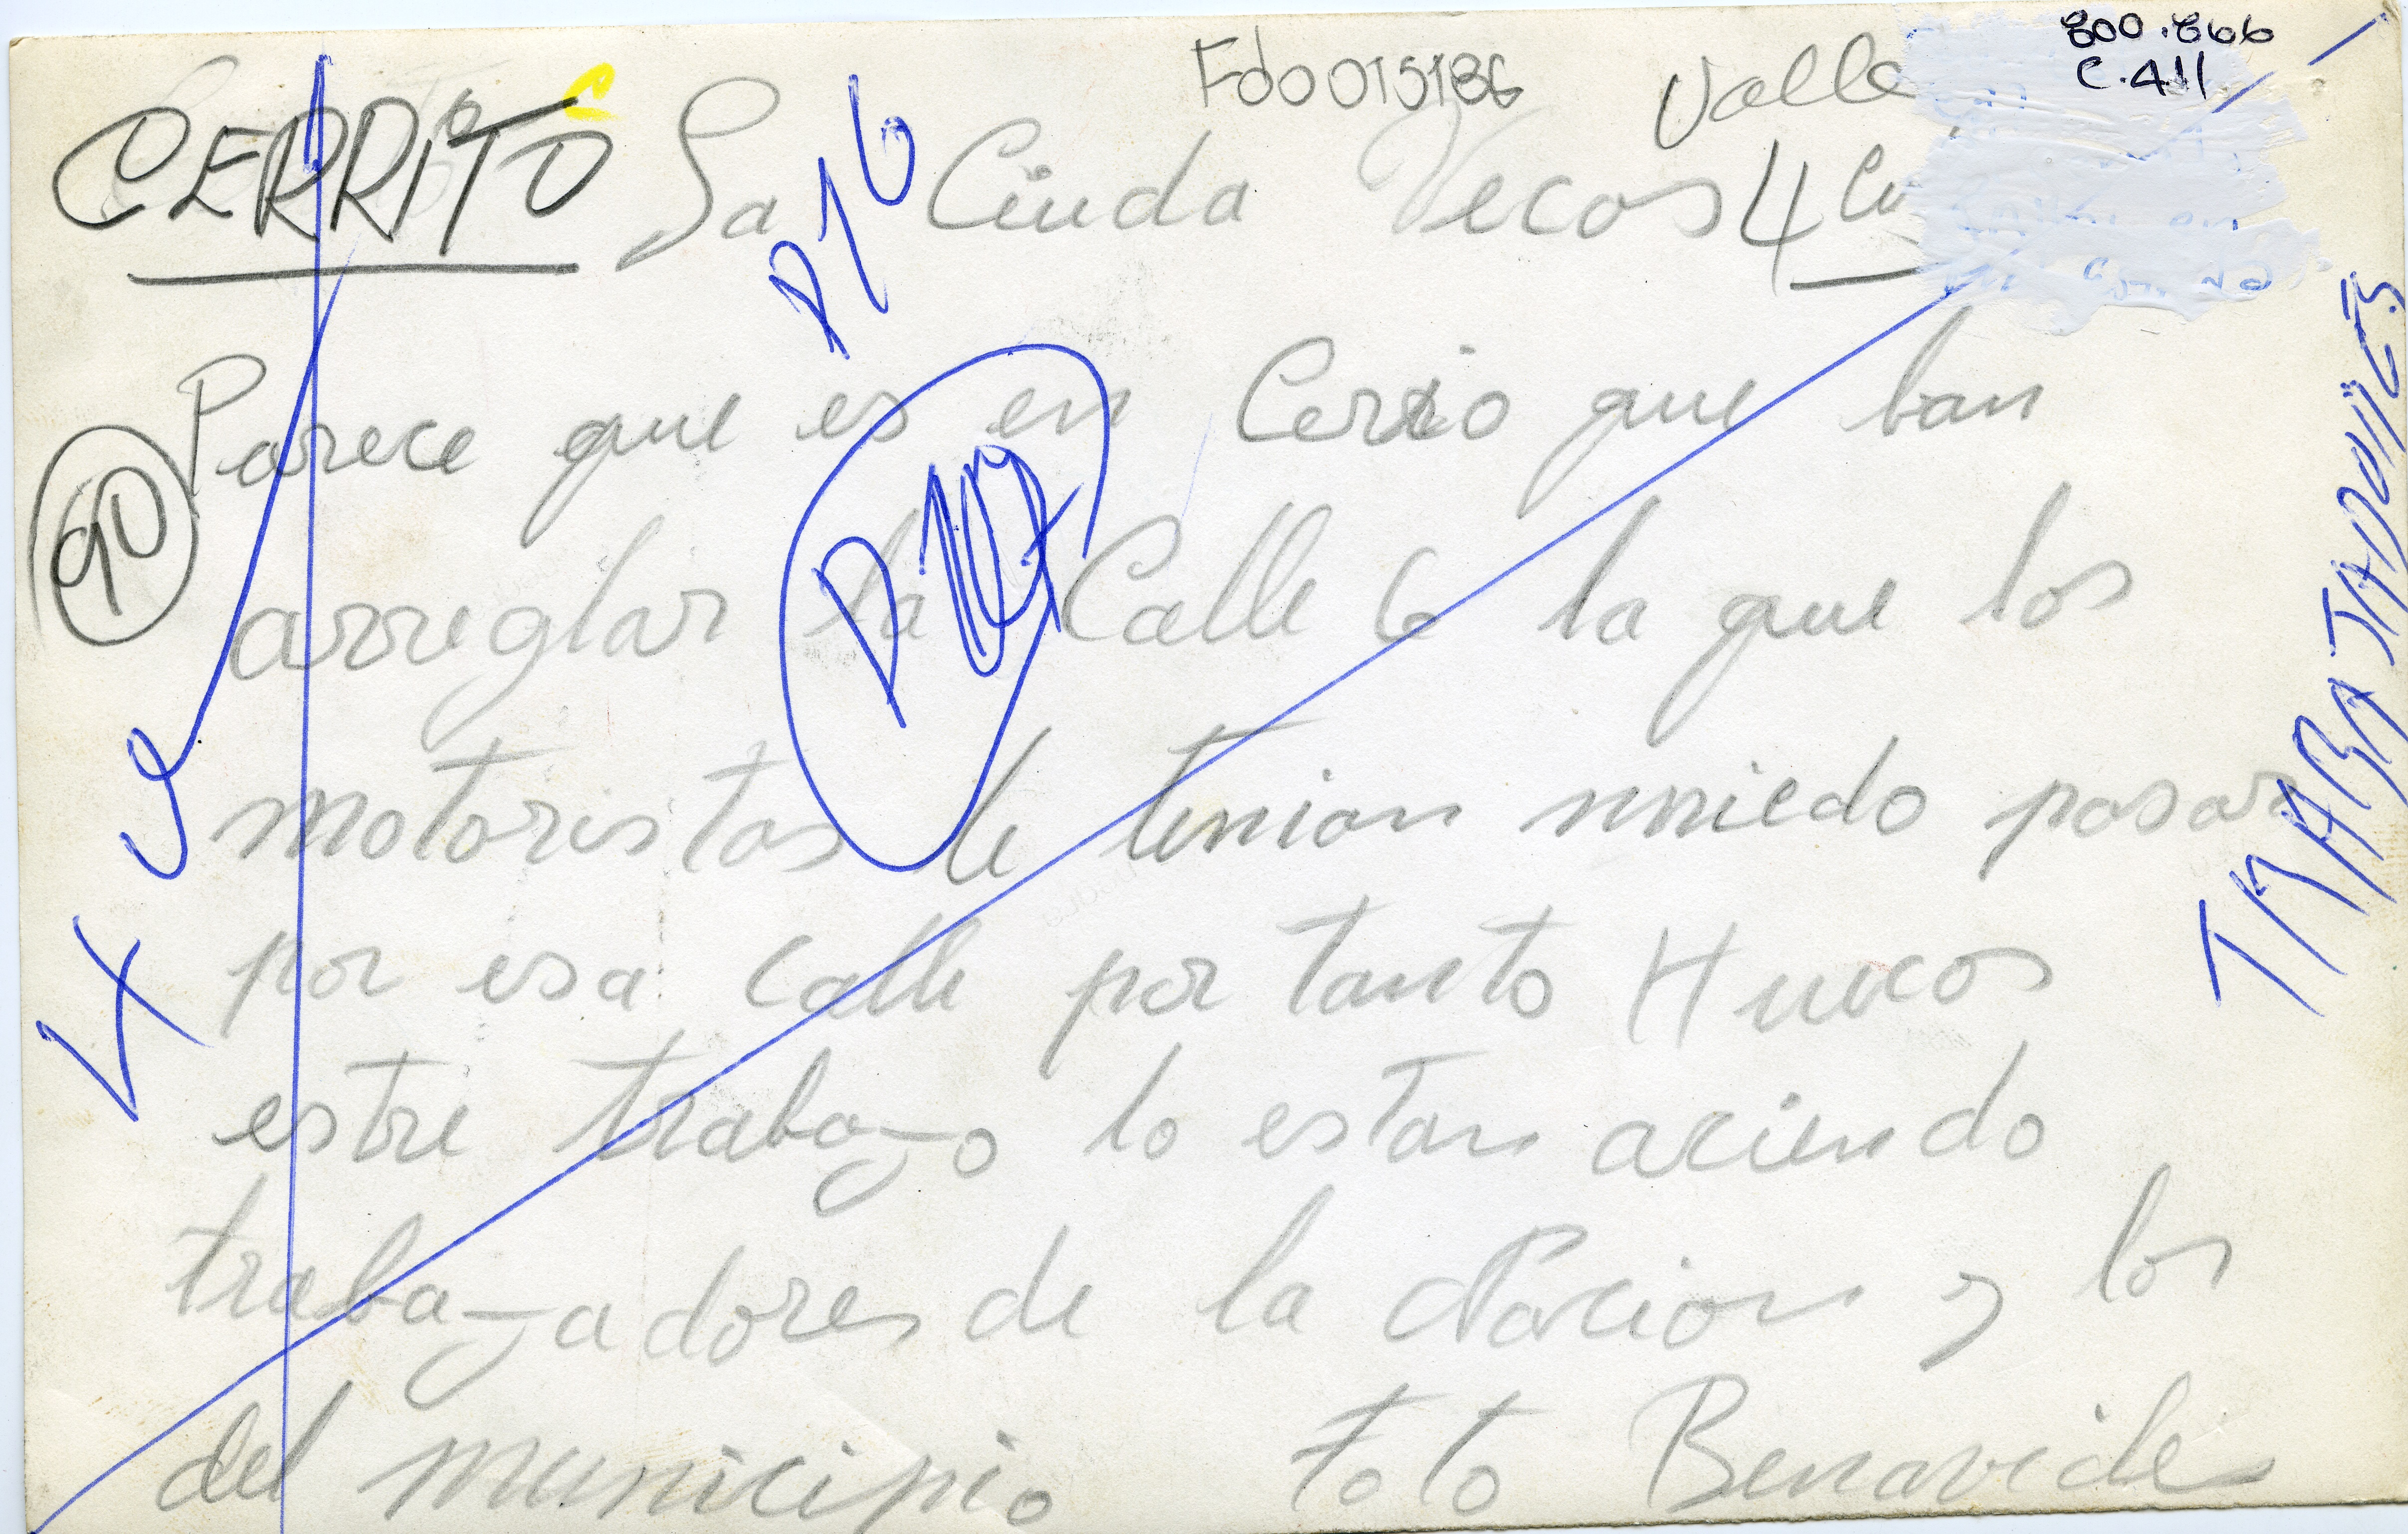 800.866
C.411
Fd0015186 Valle
CERRITO La Ciuda Vecos 4
P16
Parece que es en Cerrito que ban
90
arreglar la Calle 6 la que los
motoristas le tenian miedo pasar
por esa calle por tanto Huecos
estre trabajo lo estan aciendo
trabajadores de la Nacion y los
del municipio Foto Benavides
TRABAJADORES